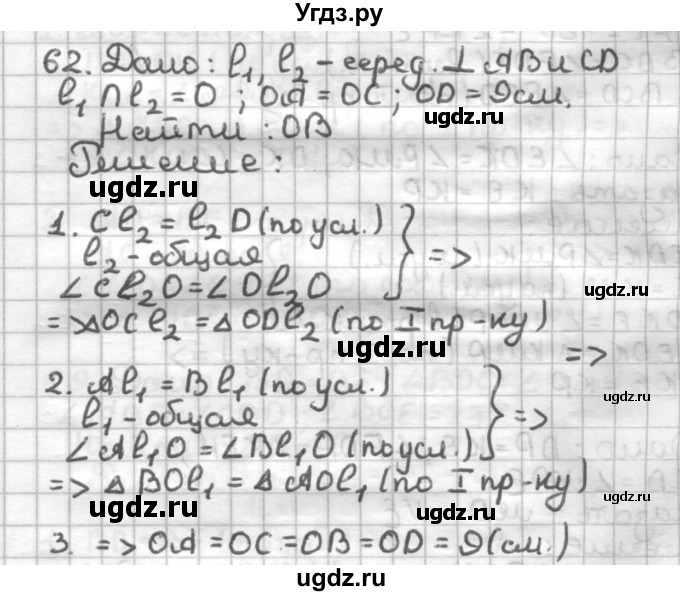 Угдз.ру
62. Дано: l₁, l₂ - серед. ⊥ AB и CD
l₁ ∩ l₂ = O ; OA = OC ; OD = 9 см.
Найти : OB
Решение :
ugdz.ru
ugdz.ru
1. Cl₂ = l₂D (по усл.)
l₂ - общая
∠Cl₂O = ∠Dl₂O
} =>
ugdz.ru
=> △OCl₂ = △ODl₂ (по I пр-ку)
ugdz.ru
=>
2. Al₁ = Bl₁ (по усл.)
ugdz.ru
l₁ - общая
∠Al₁O = ∠Bl₁O (по усл.)
} =>
ugdz.ru
=> △BOl₁ = △AOl₁ (по I пр-ку)
ugdz.ru
ugdz.ru
3. => OA = OC = OB = OD = 9 (см.)
ugdz.ru